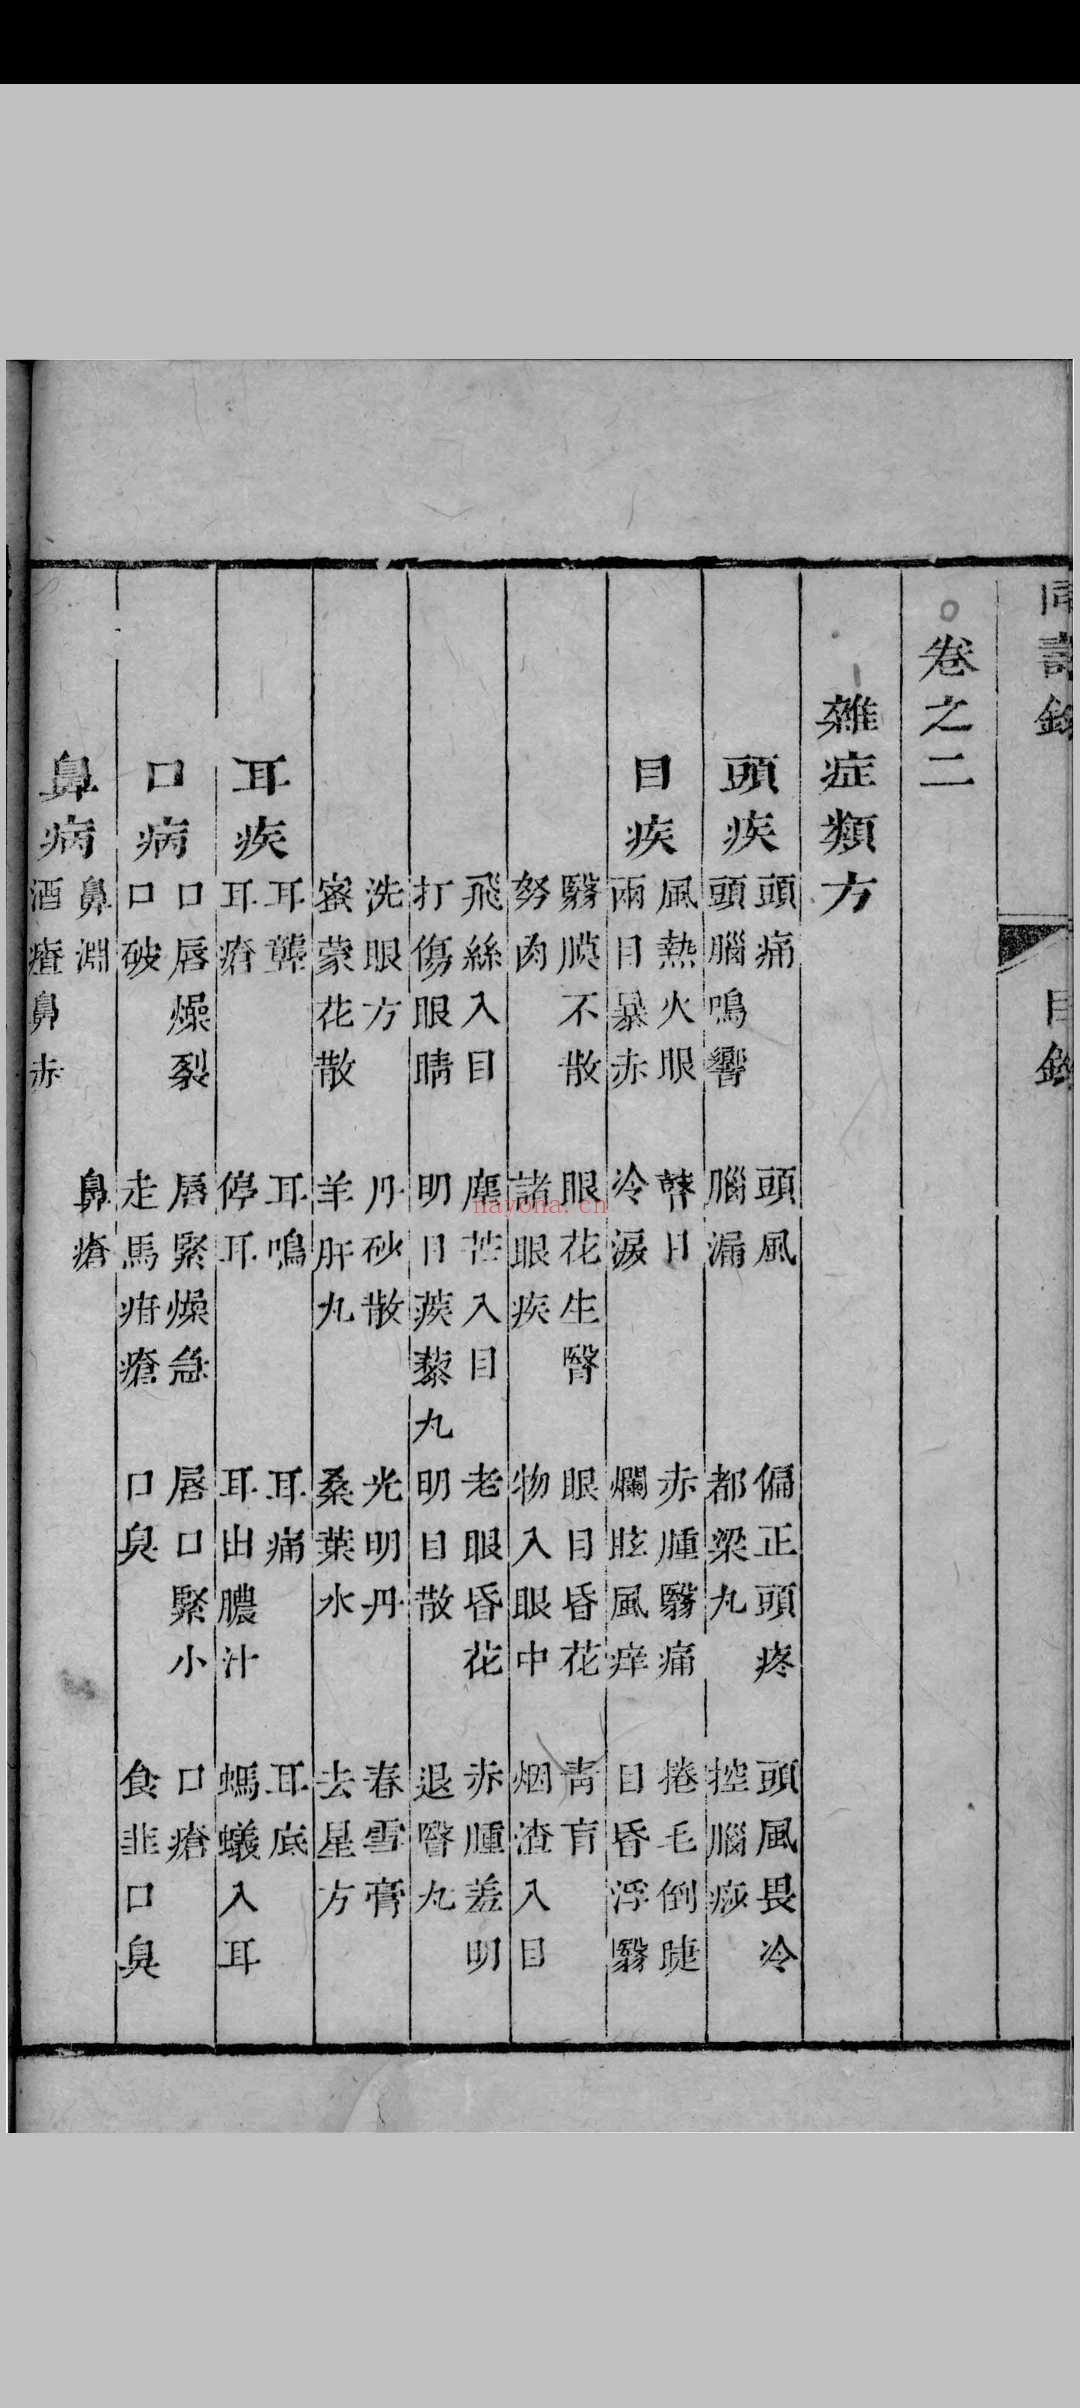 同壽錄
目錄
卷之二
雜症類方
頭疾
頭痛 頭風 偏正頭疼 頭風畏冷
頭腦鳴響 腦漏 都梁丸 控腦痧
目疾
風熱火眼 瞽目 赤腫翳痛 捲毛倒睫
兩目暴赤 冷淚 爛眩風痒 目昏浮翳
翳膜不散 眼花生瞖 眼目昏花 青盲
努肉 諸眼疾 物入眼中 烟渣入目
飛絲入目 塵芒入目 老眼昏花 赤腫羞明
打傷眼睛 明目蒺藜丸 明目散 退瞖丸
洗眼方 丹砂散 光明丹 春雪膏
蜜蒙花散 羊肝丸 桑葉水 去星方
耳疾
耳聾 耳鳴 耳痛 耳底
耳瘡 停耳 耳出膿汁 螞蟻入耳
口病
口唇燥裂 唇緊燥急 唇口緊小 口瘡
口破 走馬疳瘡 口臭 食韭口臭
鼻病
鼻淵 鼻瘡
酒瘡鼻赤
nayona.cn